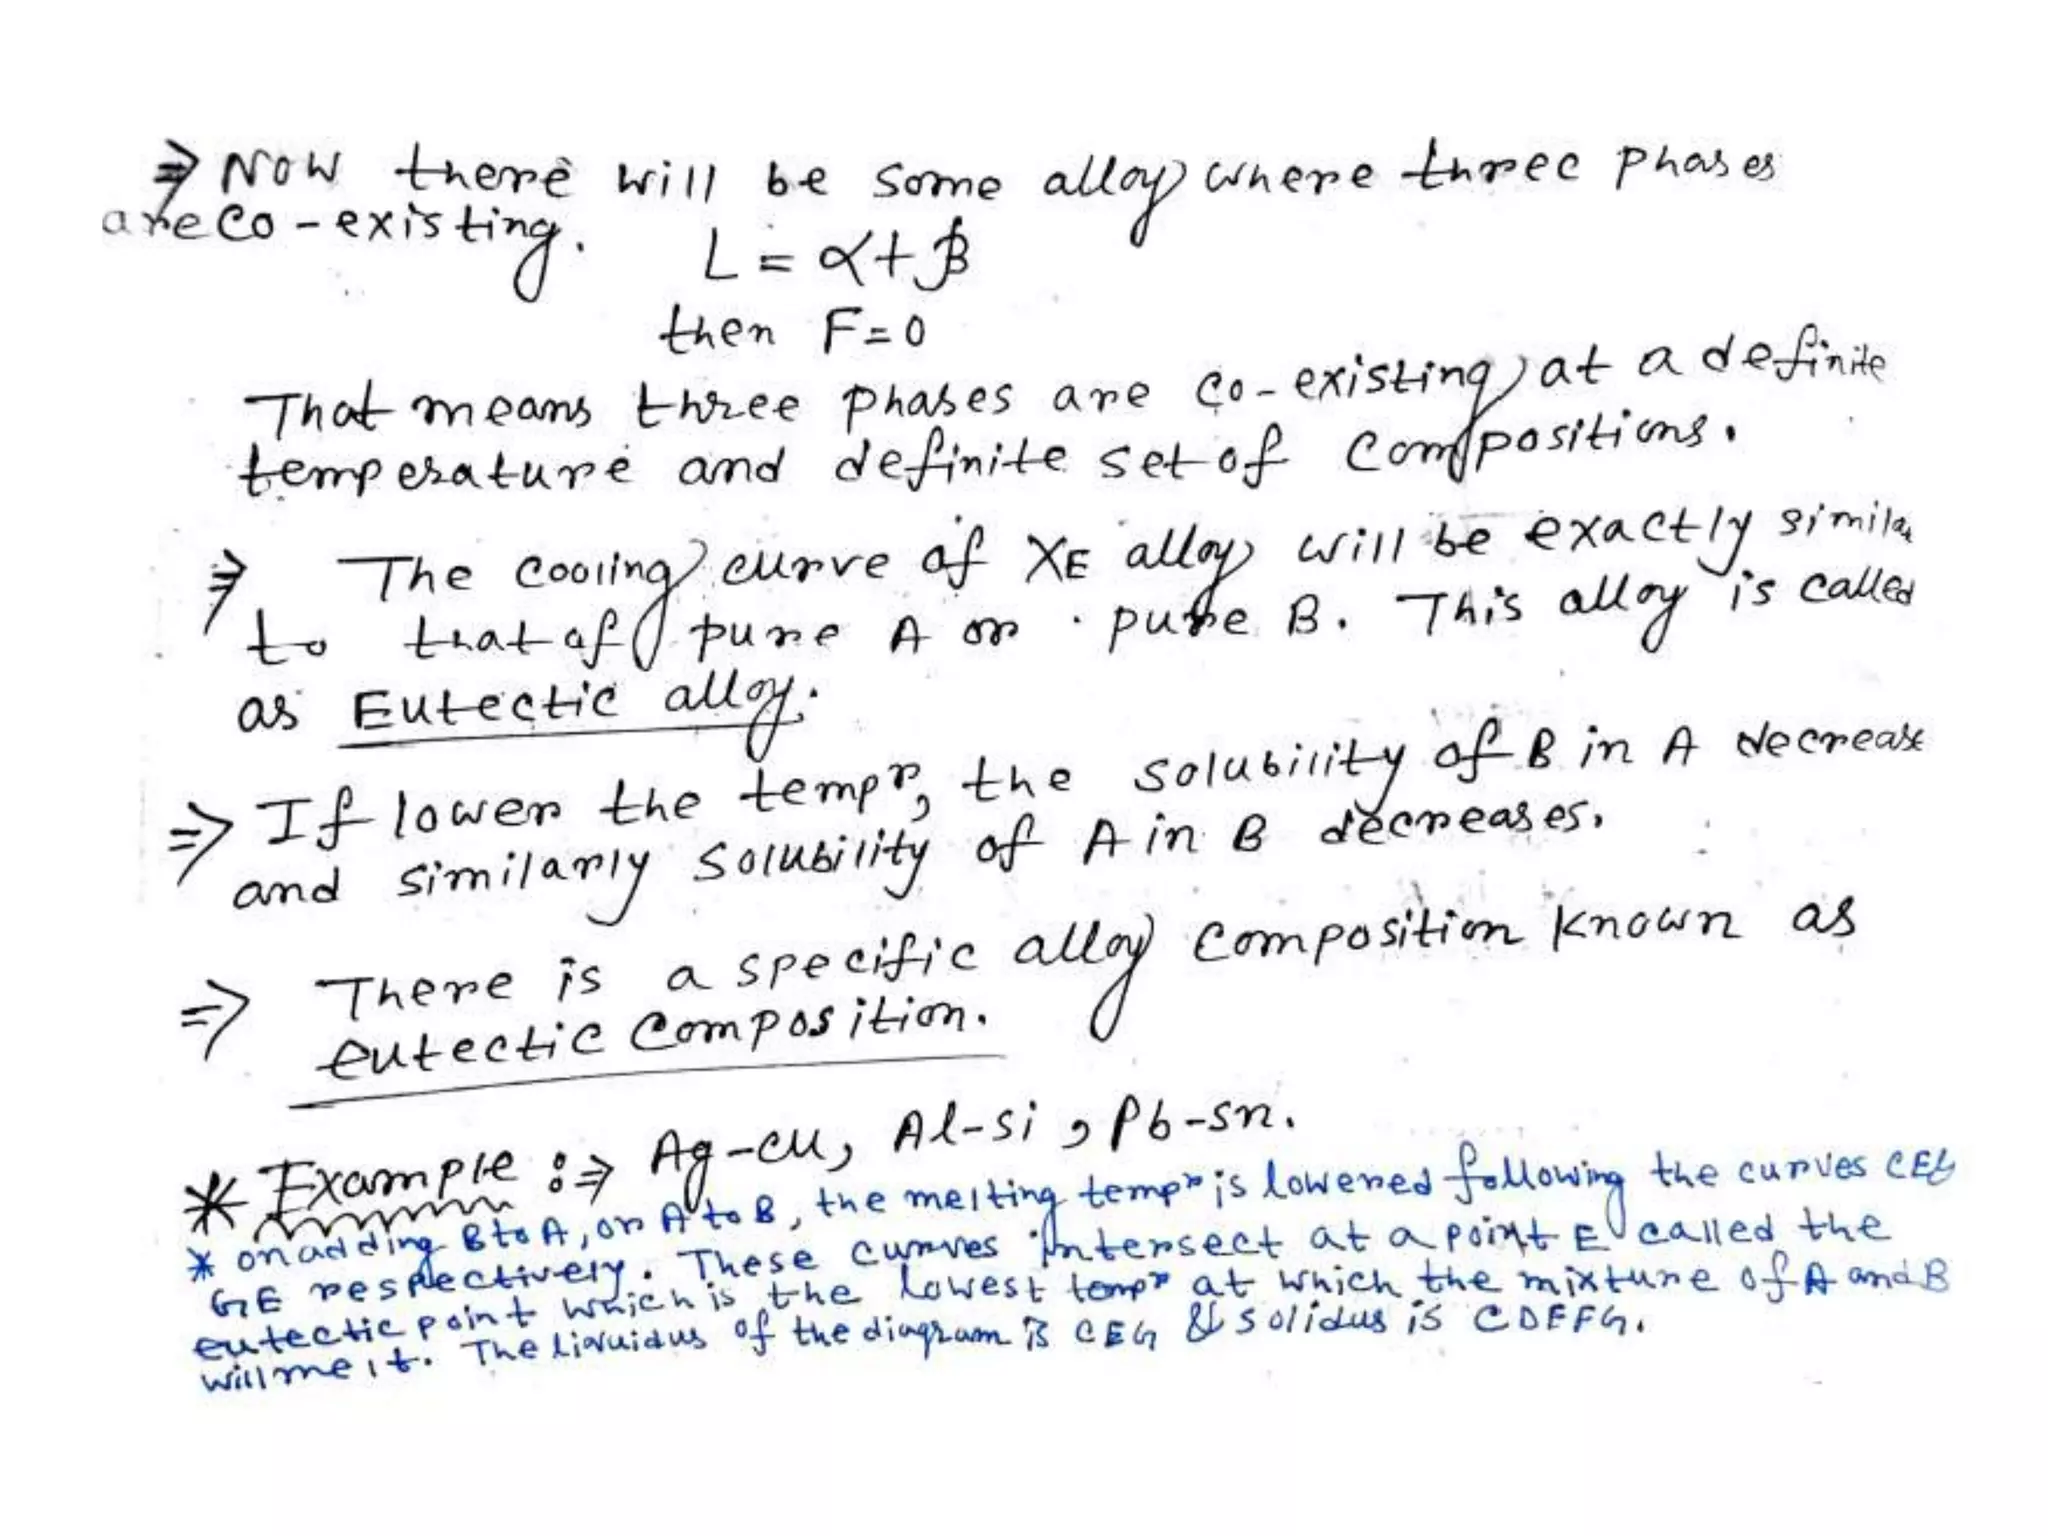 ⇒ Now there will be some alloy where three phases
are co-existing.
L = α+β
then F=0
That means three phases are co-existing at a definite
temperature and definite set of compositions.
⇒ The cooling curve of XE alloy will be exactly similar
to that of pure A or pure B. This alloy is called
as Eutectic alloy.
⇒ If lower the tempr, the solubility of B in A decrease
and similarly solubility of A in B decreases.
⇒ There is a specific alloy composition known as
eutectic composition.
* Example :⇒ Ag-cu, Al-si, Pb-sn.
* on adding B to A, or A to B, the melting tempr is lowered following the curves CE &
GE respectively. These curves intersect at a point E called the
eutectic point which is the lowest tempr at which the mixture of A and B
will melt. The liquidus of the diagram is CEG & solidus is CDEFG.